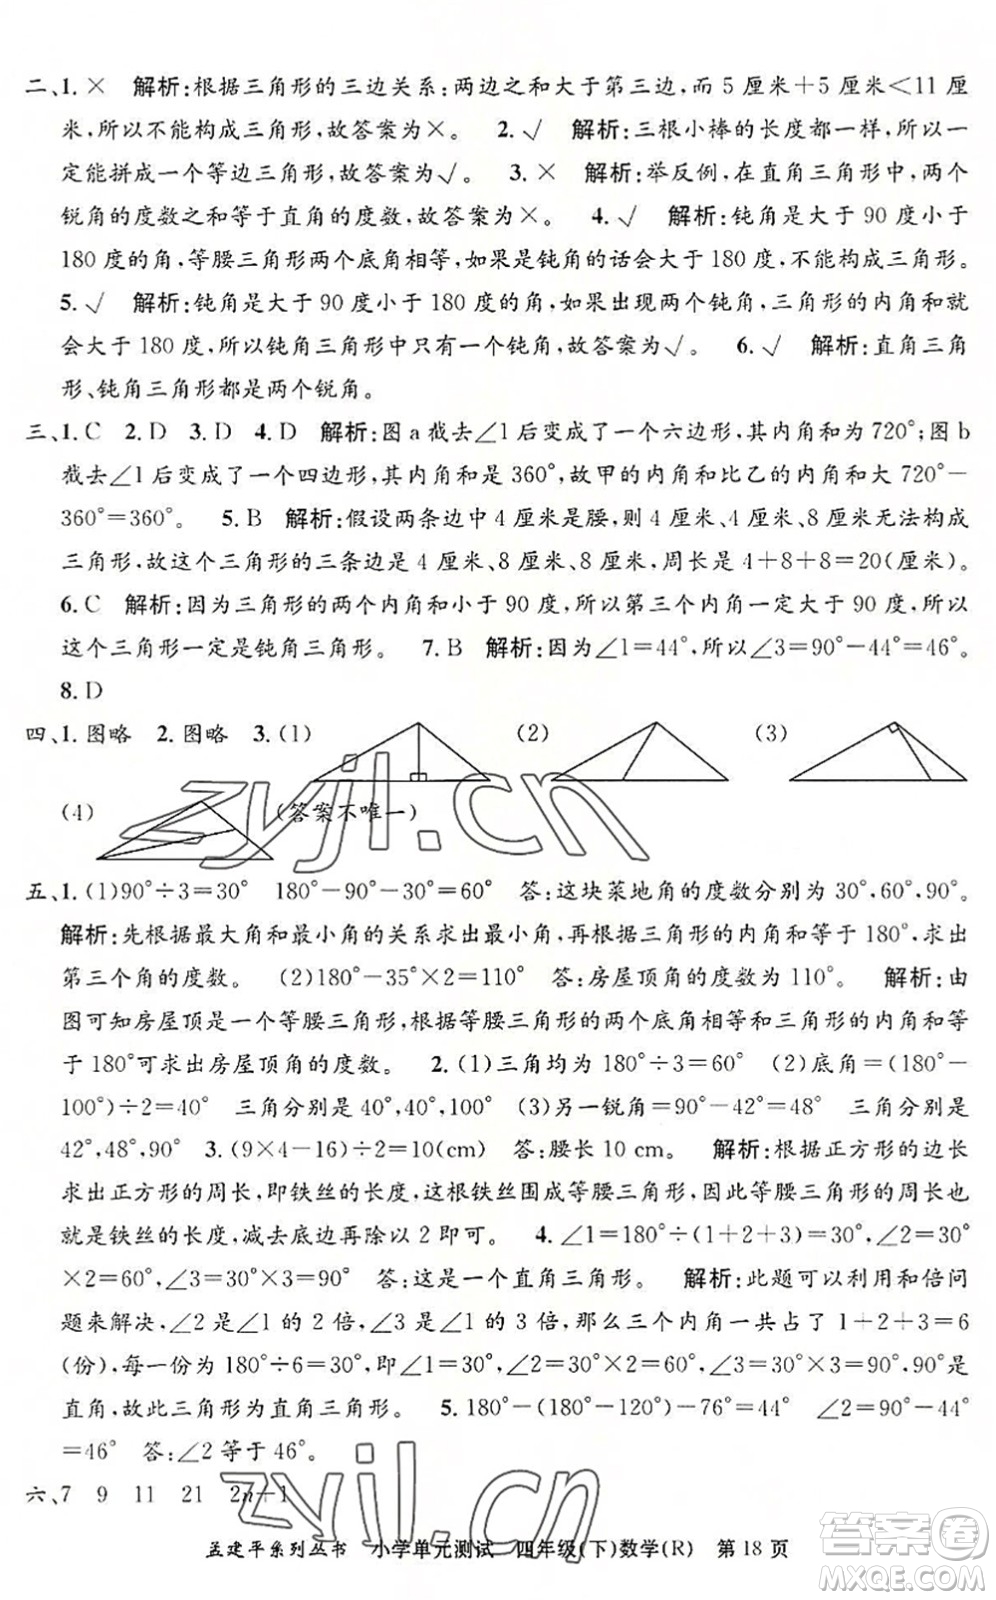 二、1. × 解析:根据三角形的三边关系:两边之和大于第三边,而 5 厘米+5 厘米<11 厘
米,所以不能构成三角形,故答案为×。 2. √ 解析:三根小棒的长度都一样,所以一
定能拼成一个等边三角形,故答案为√。 3. × 解析:举反例,在直角三角形中,两个
锐角的度数之和等于直角的度数,故答案为×。 4. √ 解析:钝角是大于 90 度小于
180 度的角,等腰三角形两个底角相等,如果是钝角的话会大于 180 度,不能构成三角形。
5. √ 解析:钝角是大于 90 度小于 180 度的角,如果出现两个钝角,三角形的内角和就
会大于 180 度,所以钝角三角形中只有一个钝角,故答案为√。 6. √ 解析:直角三角
形、钝角三角形都是两个锐角。
三、1. C 2. D 3. D 4. D 解析:图 a 截去∠1 后变成了一个六边形,其内角和为 720°;图 b
截去∠1 后变成了一个四边形,其内角和是 360°,故甲的内角和比乙的内角和大 720°-
360°=360°。 5. B 解析:假设两条边中 4 厘米是腰,则 4 厘米、4 厘米、8 厘米无法构成
三角形,故这个三角形的三条边是 4 厘米、8 厘米、8 厘米,周长是 4+8+8=20(厘米)。
6. C 解析:因为三角形的两个内角和小于 90 度,所以第三个内角一定大于 90 度,所以
这个三角形一定是钝角三角形。 7. B 解析:因为∠1=44°,所以∠3=90°-44°=46°。
8. D
四、1. 图略 2. 图略 3. (1) (2) (3)
(4) (答案不唯一)
五、1. (1)90°÷3=30° 180°-90°-30°=60° 答:这块菜地角的度数分别为 30°,60°,90°。
解析:先根据最大角和最小角的关系求出最小角,再根据三角形的内角和等于 180°,求出
第三个角的度数。 (2)180°-35°×2=110° 答:房屋顶角的度数为 110°。 解析:由
图可知房屋顶是一个等腰三角形,根据等腰三角形的两个底角相等和三角形的内角和等
于 180°可求出房屋顶角的度数。 2. (1)三角均为 180°÷3=60° (2)底角=(180°-
100°)÷2=40° 三角分别是 40°,40°,100° (3)另一锐角=90°-42°=48° 三角分别是
42°,48°,90° 3. (9×4-16)÷2=10(cm) 答:腰长 10 cm。 解析:根据正方形的边长
求出正方形的周长,即铁丝的长度,这根铁丝围成等腰三角形,因此等腰三角形的周长也
就是铁丝的长度,减去底边再除以 2 即可。 4. ∠1=180°÷(1+2+3)=30°,∠2=30°
×2=60°,∠3=30°×3=90° 答:这是一个直角三角形。 解析:此题可以利用和倍问
题来解决,∠2 是∠1 的 2 倍,∠3 是∠1 的 3 倍,那么三个内角一共占了 1+2+3=6
(份),每一份为 180°÷6=30°,即∠1=30°,∠2=30°×2=60°,∠3=30°×3=90°,90°是
直角,故此三角形为直角三角形。 5. 180°-(180°-120°)-76°=44° ∠2=90°-44°
=46° 答:∠2 等于 46°。
六、7 9 11 21 2n+1
孟建平系列丛书 小学单元测试 四年级(下)数学(R) 第 18 页
zyjl.cn
zyjl.cn
作业帮
MXQE.COM